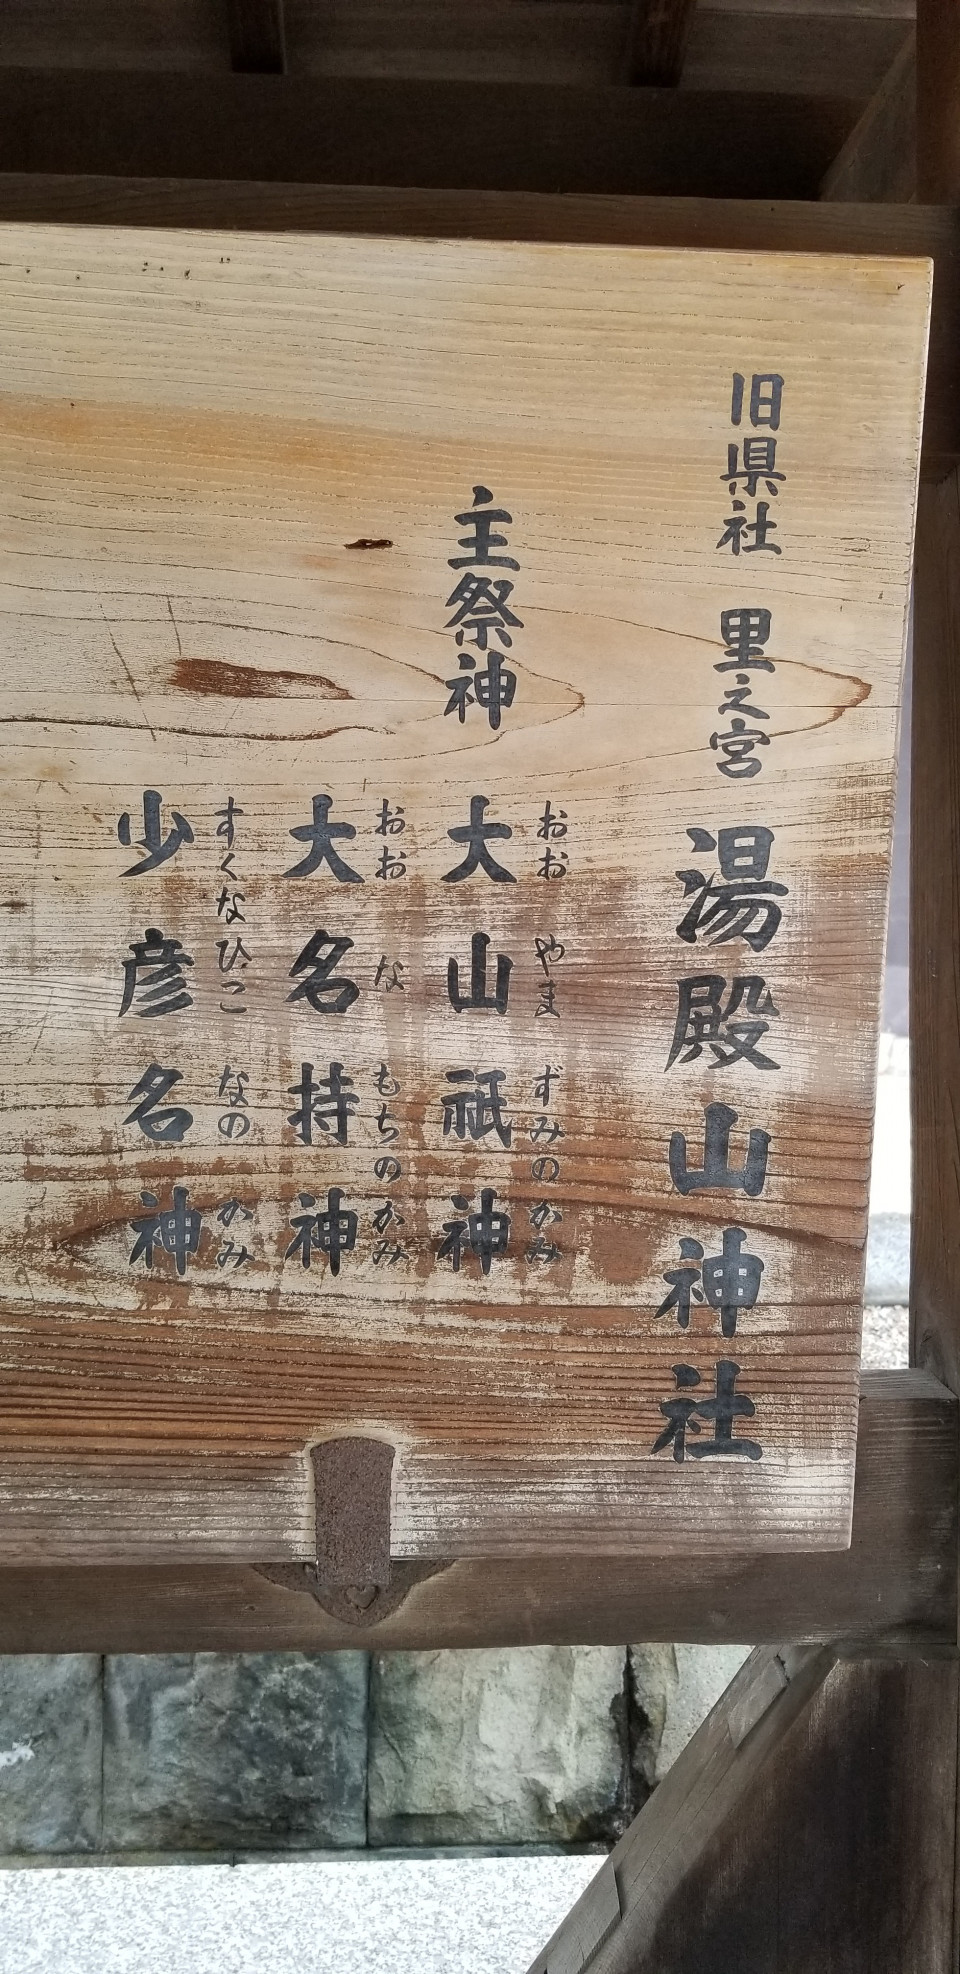 旧県社 里之宮 湯殿山神社
主祭神
おお やま ずみのかみ
大山祇神
おお な もちのかみ
大名持神
すくなひこ なの かみ
少彦名神